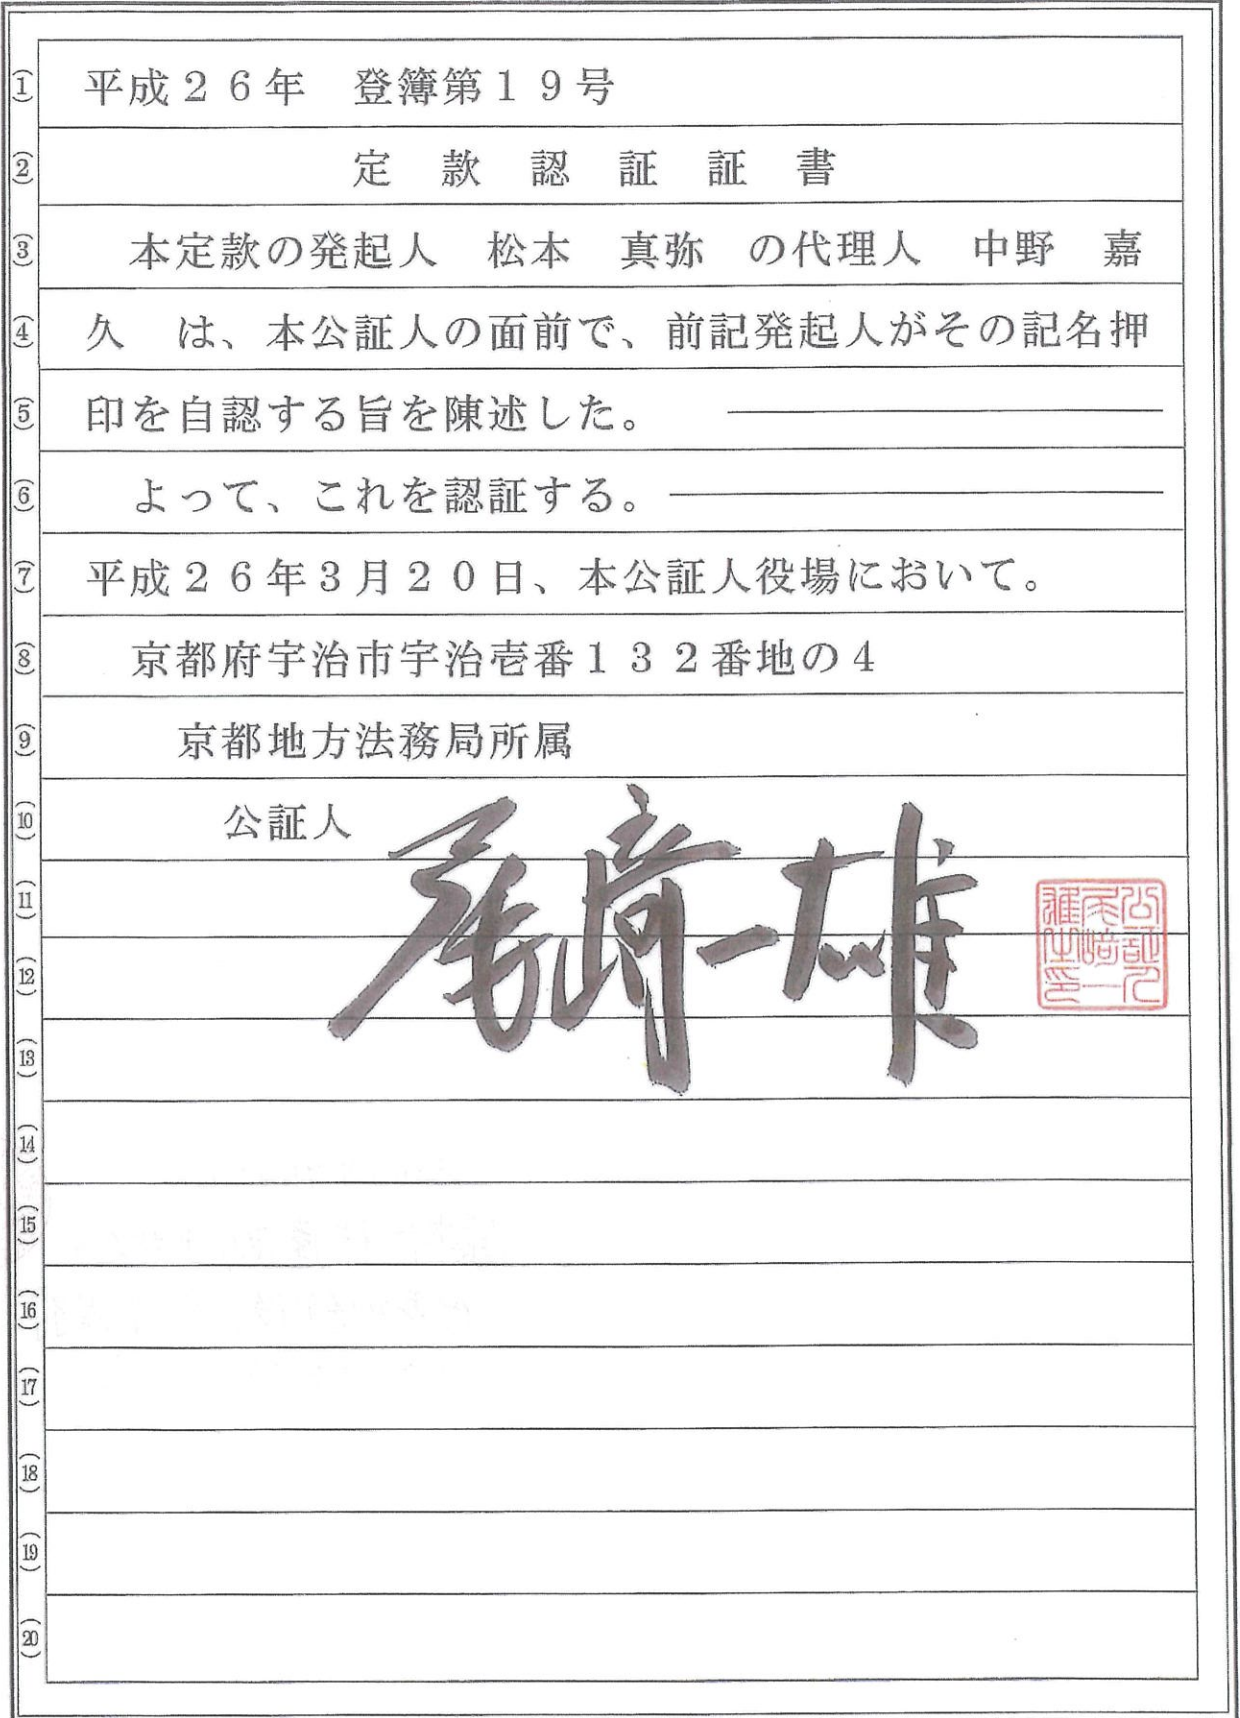 (1) 平成26年　登簿第19号
(2) 定　款　認　証　証　書
(3) 本定款の発起人　松本　真弥　の代理人　中野　嘉
(4) 久　は、本公証人の面前で、前記発起人がその記名押
(5) 印を自認する旨を陳述した。
(6) よって、これを認証する。
(7) 平成26年3月20日、本公証人役場において。
(8) 京都府宇治市宇治壱番132番地の4
(9) 京都地方法務局所属
(10) 公証人 尾﨑一雄
(11)
公証人尾﨑一雄之印
(12)
(13)
(14)
(15)
(16)
(17)
(18)
(19)
(20)